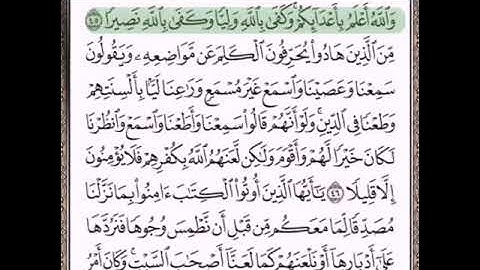 وَاللَّهُ أَعْلَمُ بِأَعْدَائِكُمْ وَكَفَىٰ بِاللَّهِ وَلِيًّا وَكَفَىٰ بِاللَّهِ نَصِيرًا ٤٥
مِّنَ الَّذِينَ هَادُوا يُحَرِّفُونَ الْكَلِمَ عَن مَّوَاضِعِهِ وَيَقُولُونَ
سَمِعْنَا وَعَصَيْنَا وَاسْمَعْ غَيْرَ مُسْمَعٍ وَرَاعِنَا لَيًّا بِأَلْسِنَتِهِمْ
وَطَعْنًا فِي الدِّينِ وَلَوْ أَنَّهُمْ قَالُوا سَمِعْنَا وَأَطَعْنَا وَاسْمَعْ وَانظُرْنَا
لَكَانَ خَيْرًا لَّهُمْ وَأَقْوَمَ وَلَٰكِن لَّعَنَهُمُ اللَّهُ بِكُفْرِهِمْ فَلَا يُؤْمِنُونَ
إِلَّا قَلِيلًا ٤٦ يَا أَيُّهَا الَّذِينَ أُوتُوا الْكِتَابَ آمِنُوا بِمَا نَزَّلْنَا
مُصَدِّقًا لِّمَا مَعَكُم مِّن قَبْلِ أَن نَّطْمِسَ وُجُوهًا فَنَرُدَّهَا
عَلَىٰ أَدْبَارِهَا أَوْ نَلْعَنَهُمْ كَمَا لَعَنَّا أَصْحَابَ السَّبْتِ وَكَانَ أَمْرُ